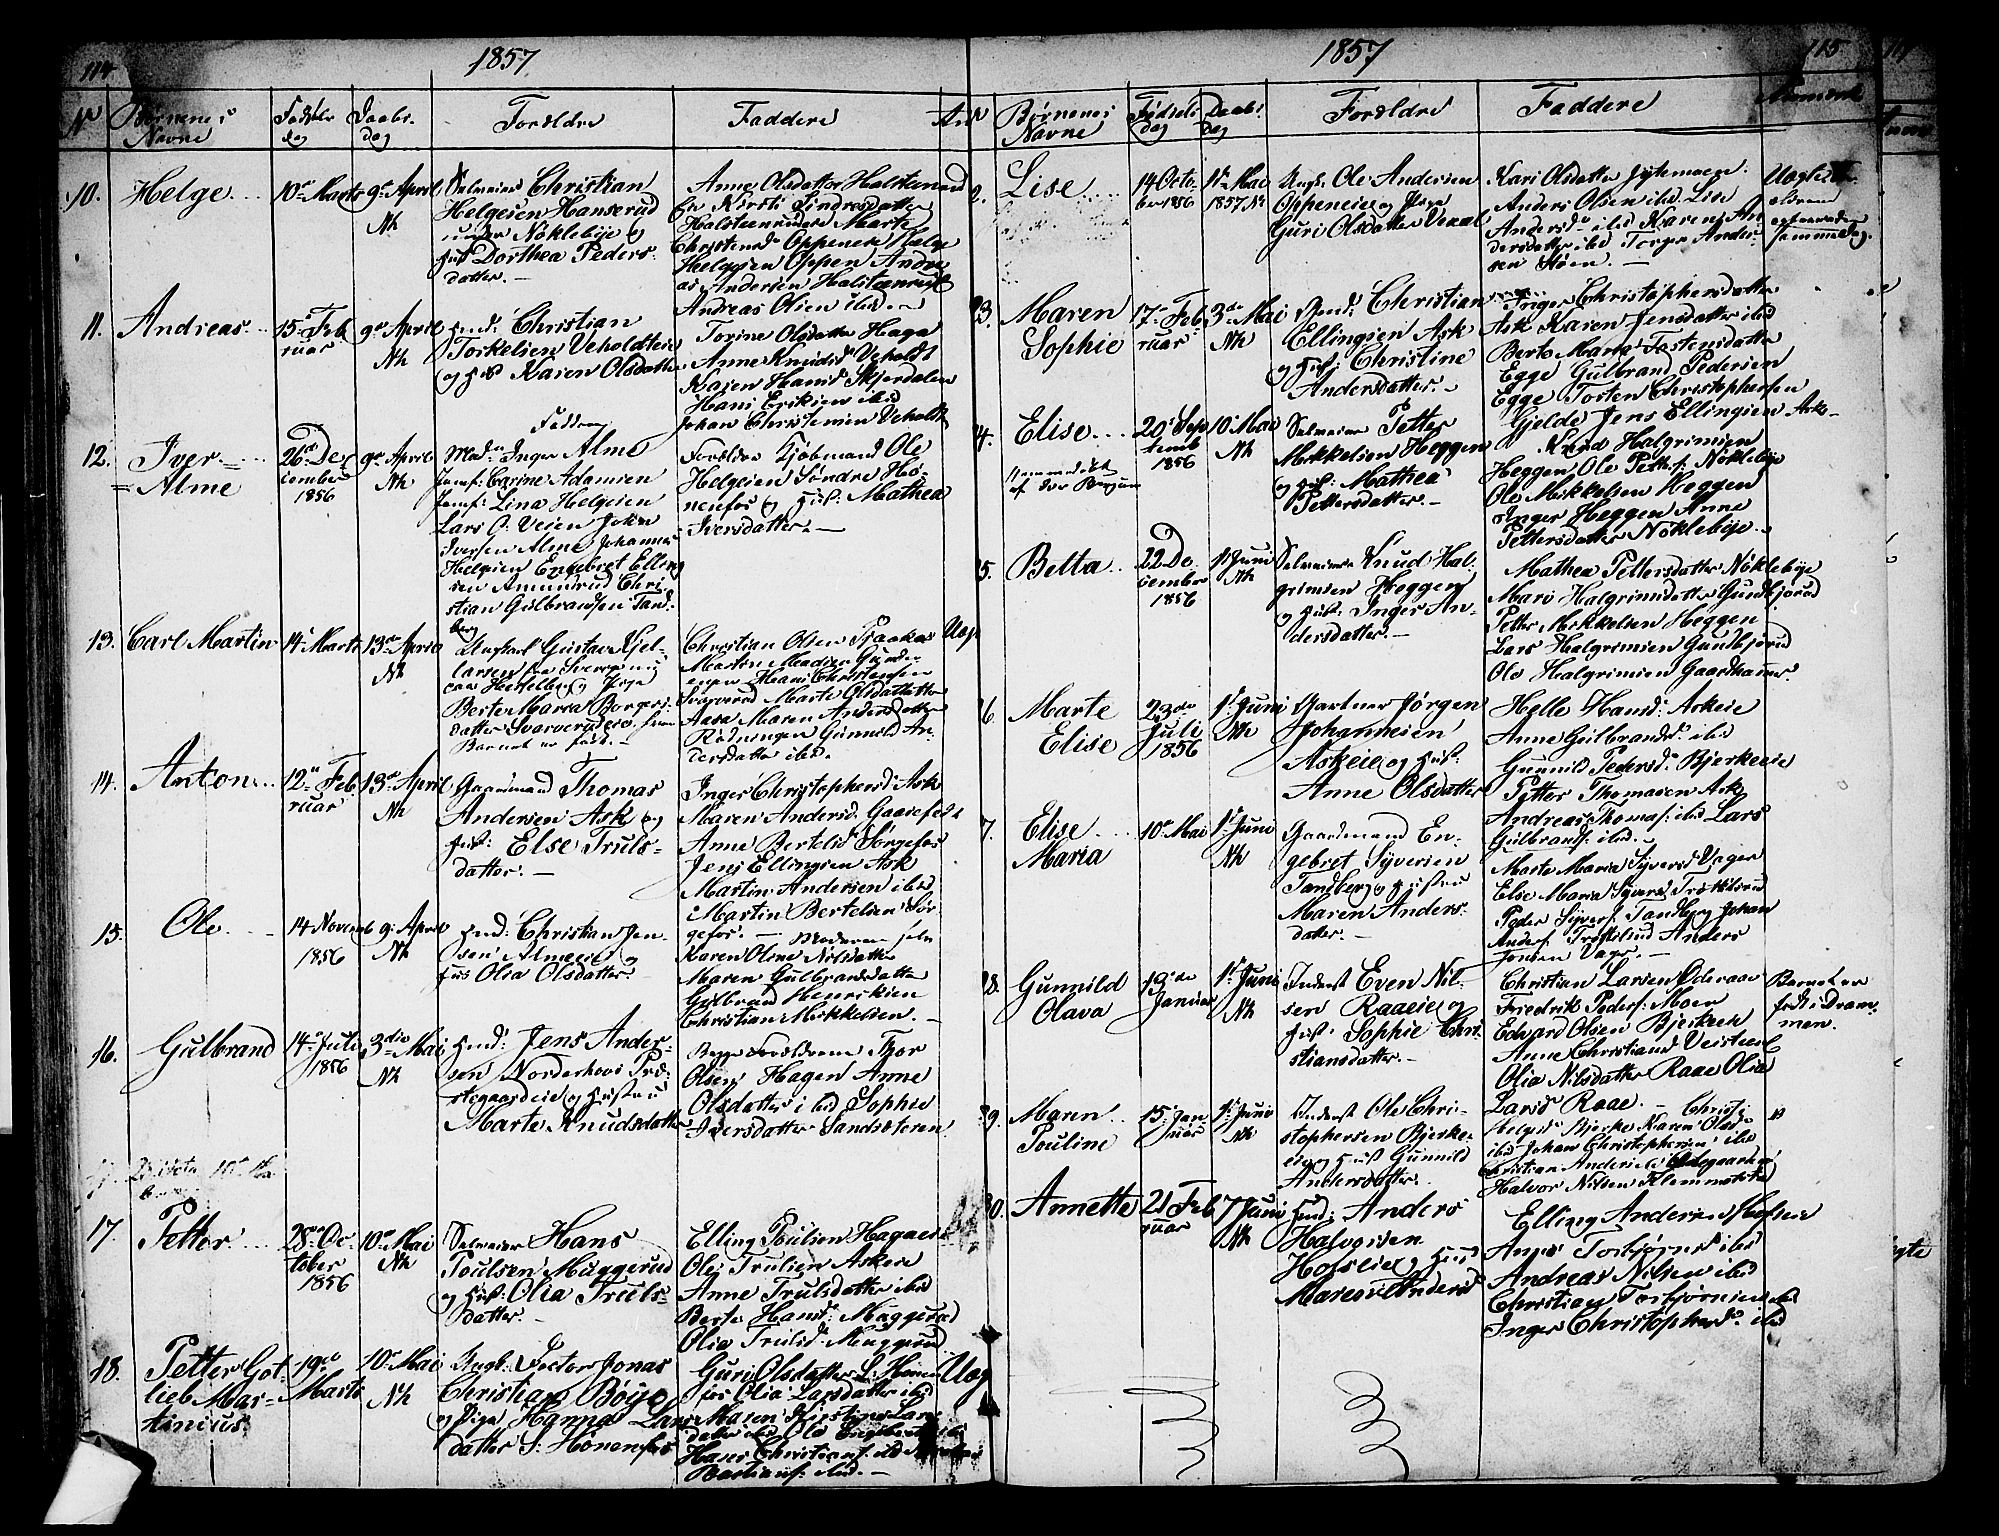 114
1857
No Børnenes Navne
Fødsels dag
Daabs dag
Forældre
Faddere
10. Helge
10de Marts
9de April
Nk
Selveier Christian
Helgesen Hanserud
under Nøklebye og
Hust Dorthea Peders
datter.
Anne Olsdatter Halsteinrud
Halsteinrud Marte
Christensd. Oppeneie Helge
Helgesen Oppen Andre
as Andersen Halsteinrud
Andreas Olsen ibid
11. Andreas
15de Feb
ruar
9de April
Nk
Huusmd: Christian
Torkelsen Veholdteie
og Hust Karen Olsdatter
Torine Olsdatter Haga
Anne Knudsd Veholdt
Karen Hansd Skjerdalen
Hans Eriksen ibid
Johan Christensen Veholdt
12. Iver
Alme
26de De
cember
1856
9de April
Nk
Faddere
Mad. Inger Alme
Jomf: Carine Adamsen
Jomf: Lina Helgesen
Lars O. Veien John
Iversen Alme Johannes
Helgesen Engebret Elling
sen Amundrud Chri
stian Gulbrandsen Tand
berg
Forældre Kjøbmand Ole
Helgesen Søndre Hø
nenfos og Hust: Mathea
Iversdatter.
13. Carl Martin
14 Marts
13de April
Nk
Ungkarl Gustav Kjel
larsen fra Sverige
og Pige
Berte Maria Borgers
datter Svarverudeie hvor
Barnet er født.
Christian Olsen Braaka
Martin Madsen Gunde
Hans Christensen
Svarverud Marte Olsdatter
Aasa Maren Andersdatter
Rødningen Gunnild An
dersdatter ibid.
Uægt
14. Anton
12te Feb
ruar
13de April
Nk
Gaardmand Thomas
Andersen Ask og
Hust: Else Truls
datter.
Inger Christophersd: Ask
Maren Andersd. Gaarefeldt
Anne Bertelsd Sørgefos
Jens Ellingsen Ask
Martin Andersen ibid
Martin Bertelsen Sør
gefos.
15. Ole
14 Novemb
1856
9de April
Nk
Huusmd: Christian Jen
sen Almeeie og
Hus Olia Olsdatter
Moderen selv
Karen Oline Nilsdatter
Maren Gulbrandsdatter
Gulbrand Henriksen
Christian Mikkelsen.
16. Gulbrand
14de Juli
1856
3die Mai
Nk
Huusmd: Jens Ander
sen Norderhovs Præ
stegaardeie og Hustru
Marte Knudsdatter
Begge Forældrene Thor
Olsen Hagen Anne
Olsdatter ibid Sophie
Iversdatter Sandsæteren
17. Petter
28de Oc
tober
1856
10de Mai
Nk
Selveier Hans
Poulsen Muggerud
og Hust: Olia Truls
datter.
Elling Poulsen Hagaeie
Ole Trulsen Askeie
Anne Trulsdatter ibid
Berte Hansd: Muggerud
Olia Trulsd: Muggerud
18. Petter Got
lieb Mar
tinius
19de
Marts
10de Mai
Nk
Ungk: Doctor Jonas
Christian Bøye
og Pige Hanna Lars
datter S: Hønenfos
Guri Olsdatter S: Hønen
fos Olia Larsdatter ibid
Maren Kirstine Lars
datter ibid Ole Engebretsen ibid
Hans Christians: ibid
Bastians: ibid.
Uægt
1857
115
No Børnenes Navne
Fødsels dag
Daabs dag
Forældre
Faddere
Anmærk
2. Lise
14 Octo
ber 1856
1ste Mai
1857 Nk
Ungk: Ole Andersen
Oppeneie og Pige
Guri Olsdatter Viaal
Kari Olsdatter
Anders Olsen ibid Lise
Andersd ibid Karen An
dersdatter ibid Torger Ander
sen Støen.
Uægte
samme Dag.
23. Maren
Sophie
17 Feb
ruar
3die Mai
Nk
Huusmd: Christian
Ellingsen Ask
og Hust: Christine
Andersdatter.
Inger Christophersdatter
Ask Karen Jensdatter ibid
Berte Maria Tostensdatter
Egge Gulbrand Pedersen
Egge Tosten Christophersen
Gjelde Jens Ellingsen Ask
4. Elise
20de Sep
temb
1856
10de Mai
Nk
Selveier Petter
Mikkelsen Heggen
og Hust: Mathea
Pettersdatter.
Knud Halgrimsen
Heggen Ole Petters: Nøklebye
Ole Mikkelsen Heggen
Inger Heggen Anne
Pettersdatter Nøklebye
5. Betta
22 De
cember
1856
1ste Juni
Nk
Selveier Knud Hal
grimsen Heggen
og Hust: Inger An
dersdatter.
Mathea Pettersdatter Nøklebye
Mari Halgrimsdatter Gundbjørud
Petter Mikkelsen Heggen
Lars Halgrimsen Gundbjørud
Ole Halgrimsen Gaardhammer.
6. Marte
Elise
23de
Juli
1856
1ste Juni
Nk
Gartner Jørgen
Johannesen
Askeie og Hust:
Anne Olsdatter
Helle Hansd: Askeie
Anne Gulbrandsd. ibid
Gunnild Pedersd. Bjerkeeie
Petter Thomasen Ask
Andreas Thomas: ibid Lars
Gulbrands: ibid.
7. Elise
Maria
10de Mai
1ste Juni
Nk
Gaardmand En
gebret Syversen
Tandberg og Hustru
Maren Anders
datter.
Marte Maria Syversd Vager
Else Maria Syversd Trøkelsrud
Peder Syvers: Tandberg Johan
Anders: Trøkelsrud Anders
Jonsen Vager.
28. Gunnild
Olava
19de
Januar
1ste Juni
Nk
Inderst Even Nil
sen Raaeie og
Hust: Sophie Chri
stiansdatter.
Christian Larsen Oderaae
Fredrik Peders: Moen
Edvard Olsen Bjerkeeie
Anne Christiansd Veisteen
Olia Nilsdatter Raae Olia
Larsd Raae.
Barnet er
født i Dram
men.
29. Maren
Pouline
15 Jan
uar
1ste Juni
Nk
Inderst Ole Chri
stophersen Bjerke
eie og Hust Gunnild
Andersdatter.
Helgesd Bjerke Karen Olsd
ibid Johan Christophersen ibid
Christian Andersen Ødegaarden
Halvor Nilsen Klemmetsbye
30. Annette
21 Feb
ruar
7 Juni
Nk
Huusmd: Anders
Halvorsen
Hofseie og Hust
Maren Andersd
Elling Andersen Hofseie
Anne Torbjørnsd ibid
Andreas Nilsen ibid
Christian Torbjørnsen ibid
Inger Christophersd. ibid